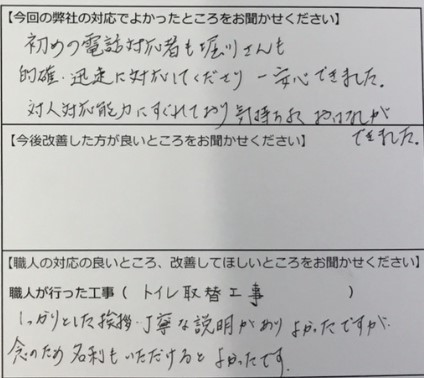 【今回の弊社の対応でよかったところをお聞かせください】
初めの電話対応者も堀川さんも
的確・迅速に対応してくださり 一安心できました。
対人対応能力にすぐれており 気持ちよく おはなしが
できました。
【今後改善した方が良いところをお聞かせください】
【職人の対応の良いところ、改善してほしいところをお聞かせください】
職人が行った工事（ トイレ取替工事 ）
しっかりとした挨拶・丁寧な説明があり よかったですが
念のため 名刺もいただけると よかったです。